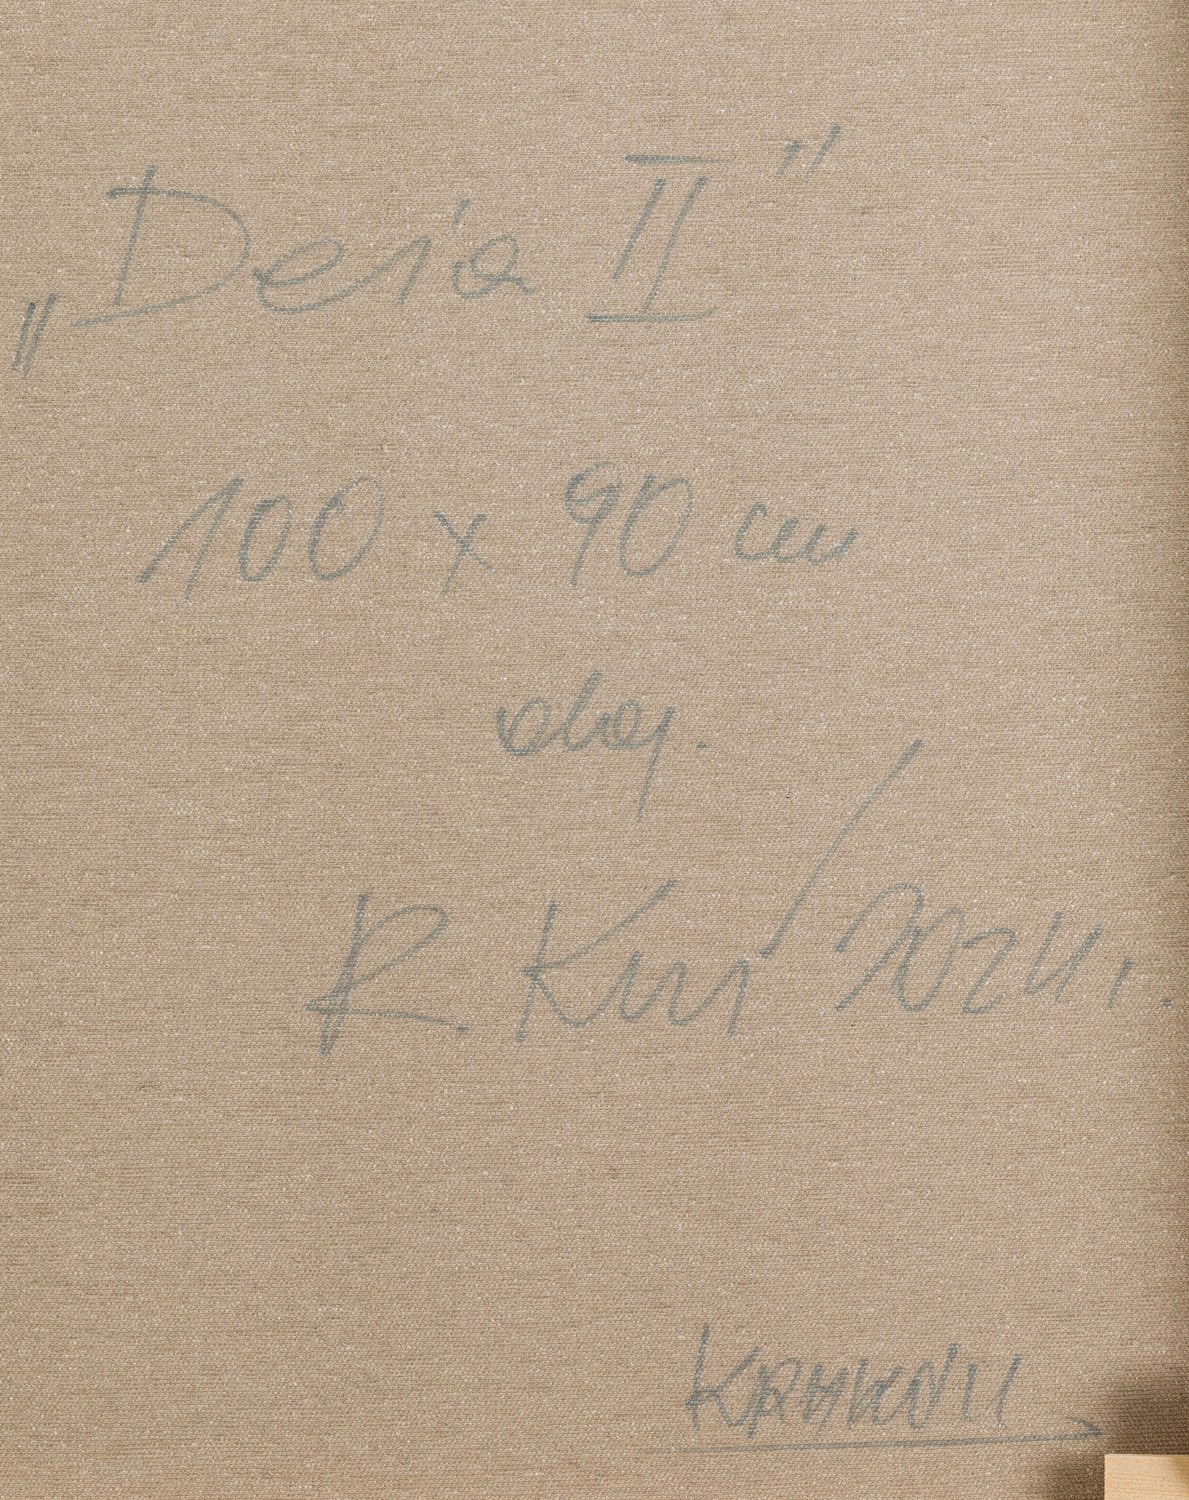 „Deia II”
100 x 90 cm
olej.
R. Kur 2024r.
KRAKÓW